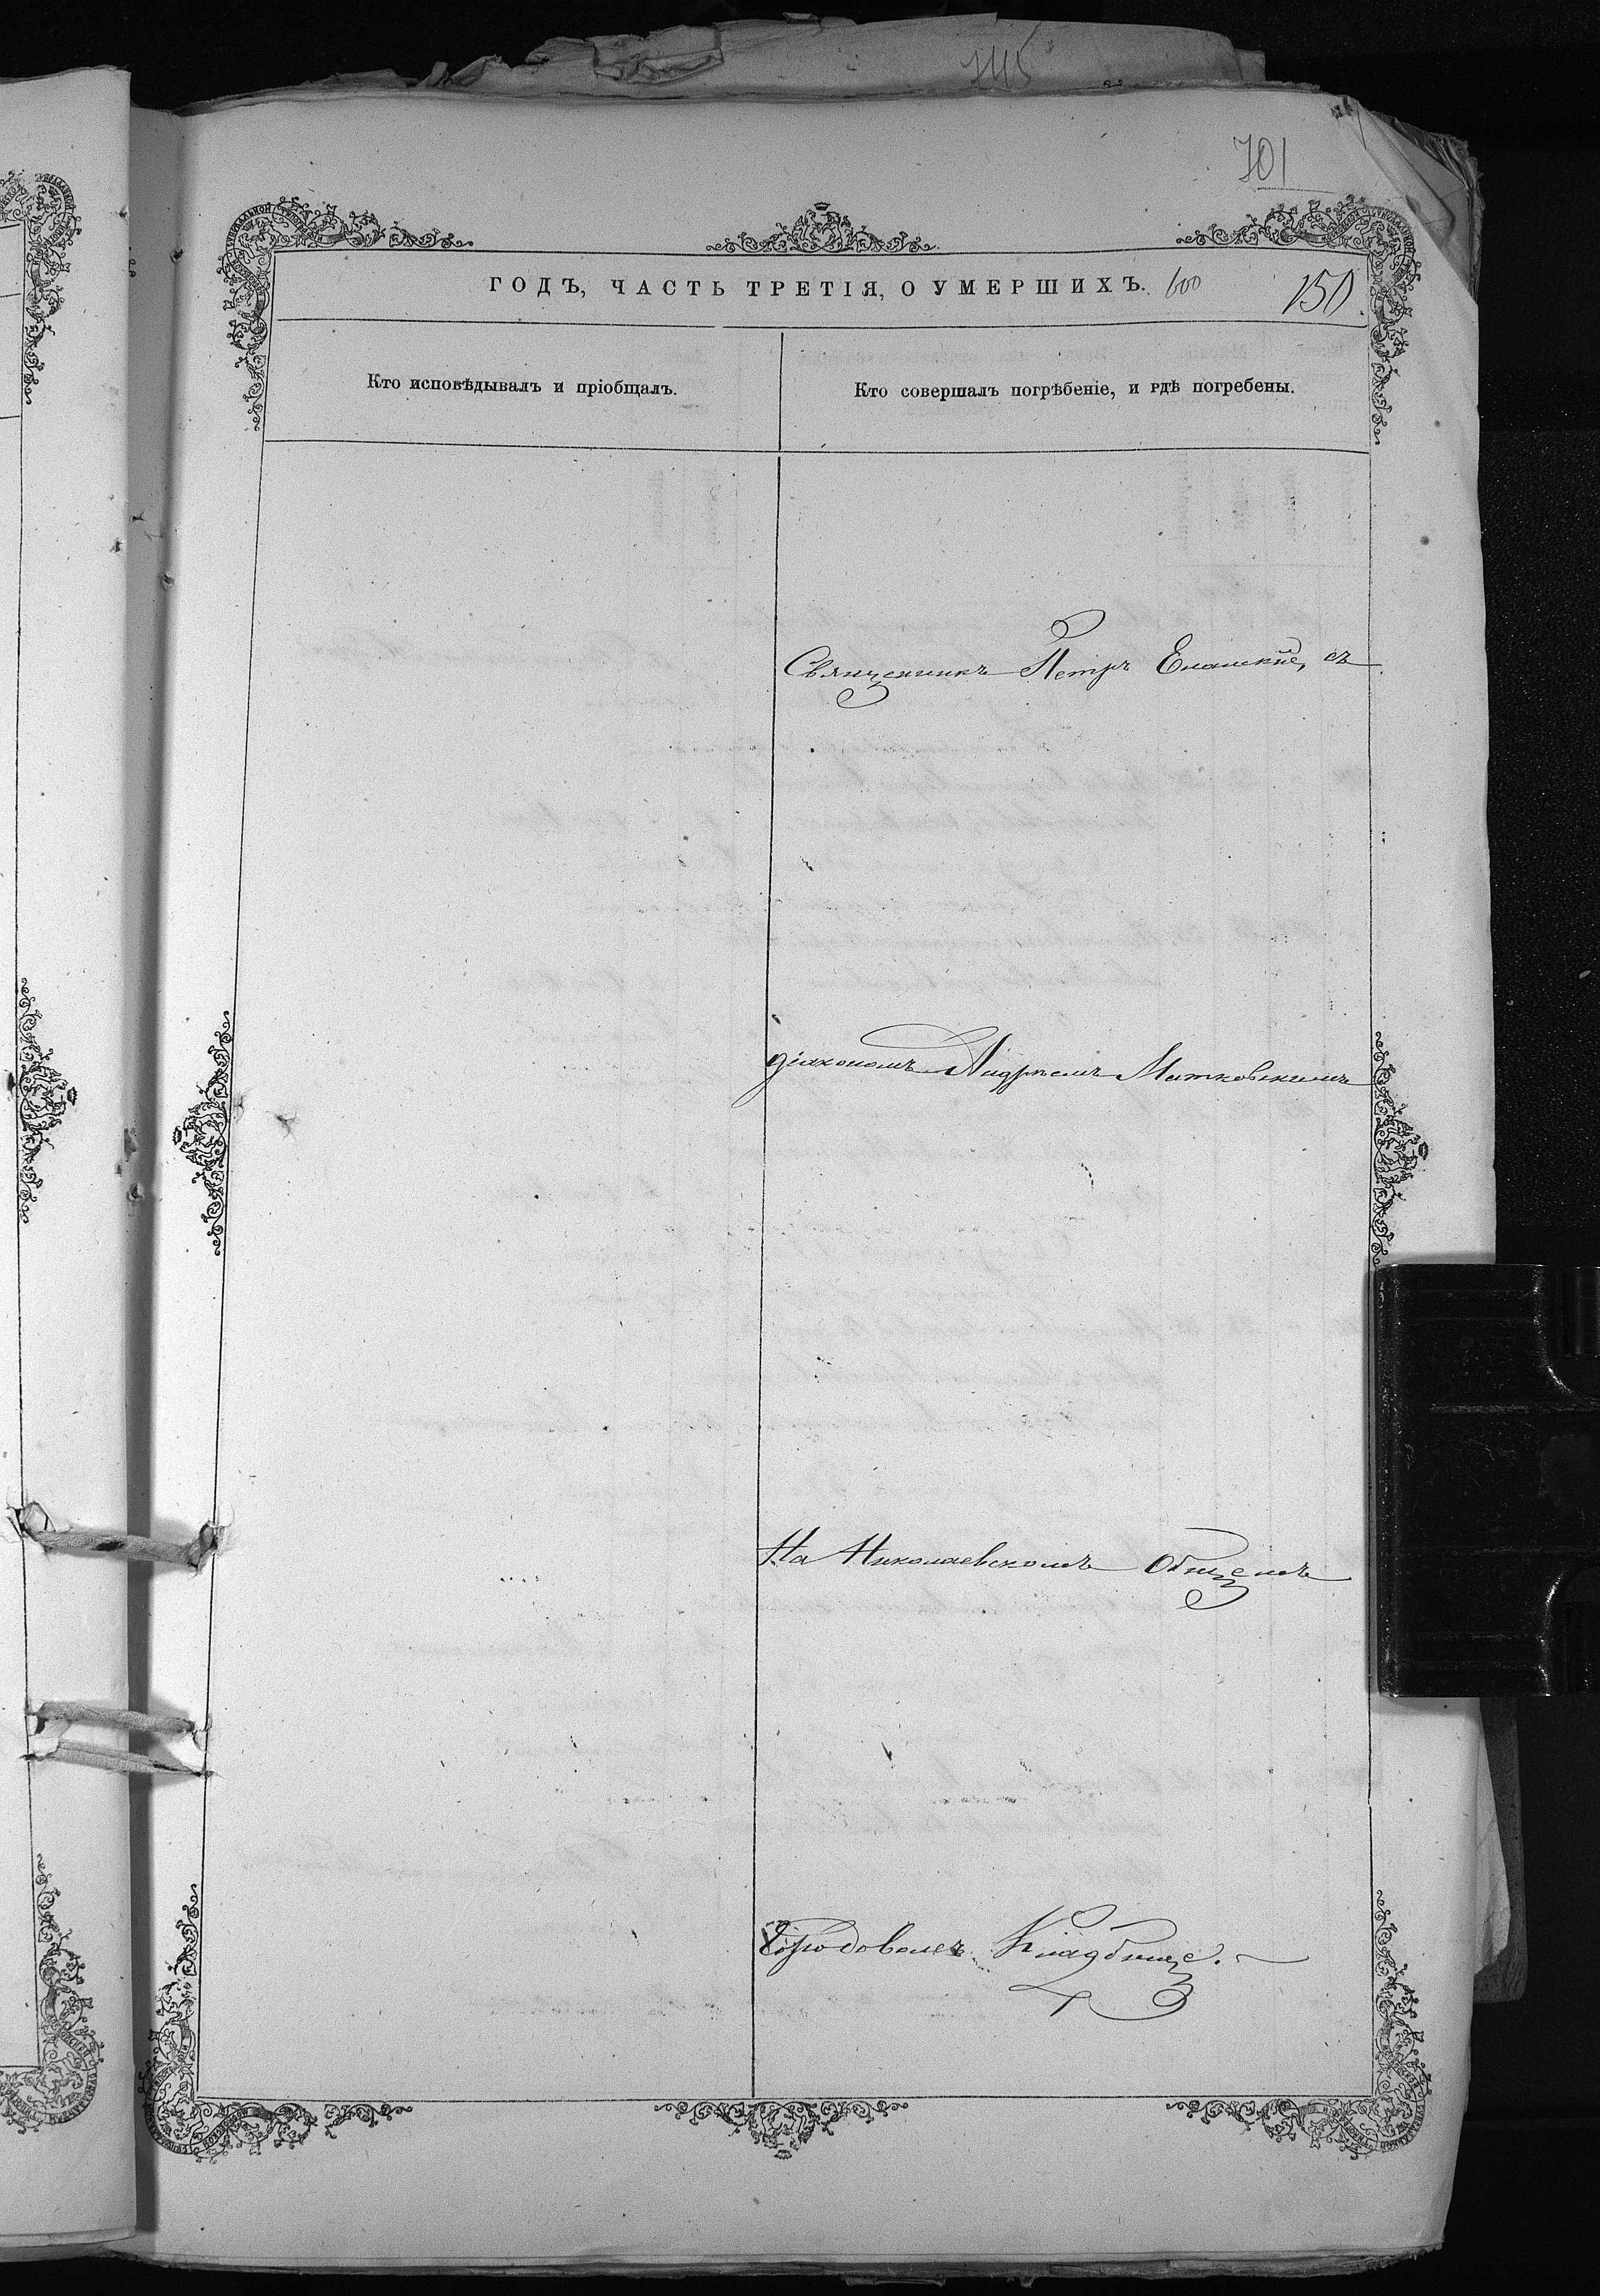 745
701
ГОДЪ, ЧАСТЬ ТРЕТІЯ, О УМЕРШИХЪ. 600 150.
Кто исповѣдывалъ и пріобщалъ.
Кто совершалъ погрѣбеніе, и гдѣ погребены.
Священникъ Петръ Еланскій, съ
діакономъ Андреемъ Матковскимъ
На Николаевскомъ Общемъ
Городовомъ Кладбище.